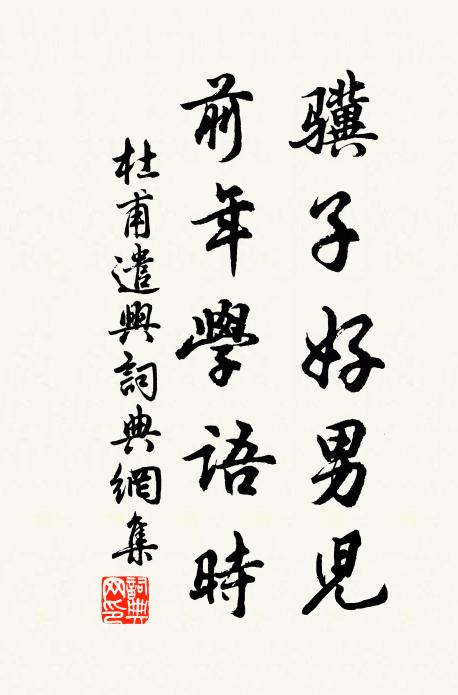 驥子好男兒
前年學語時
杜甫遣興詞典網集
詞典网印